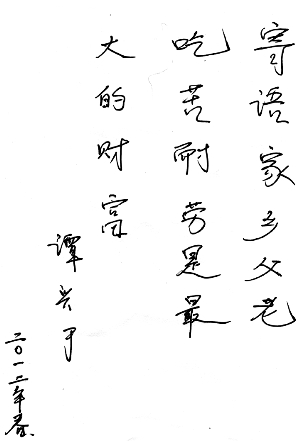 寄语家乡父老
吃苦耐劳是最
大的财富
谭兴于
二〇一二年春